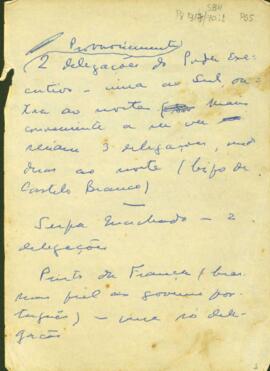 SBH
Pi 317 P05
Provisoriamente
2 delegações do Poder Exe-
cutivo - uma ao Sul ou-
tra ao norte mais
conveniente a seu ver
seriam 3 delegações, sendo
duas ao norte (bispo de
Castelo Branco)
Serpa Machado - 2
delegações
Pinto da França (bra-
mas fiel ao governo por-
tuguês) - uma só dele-
gação